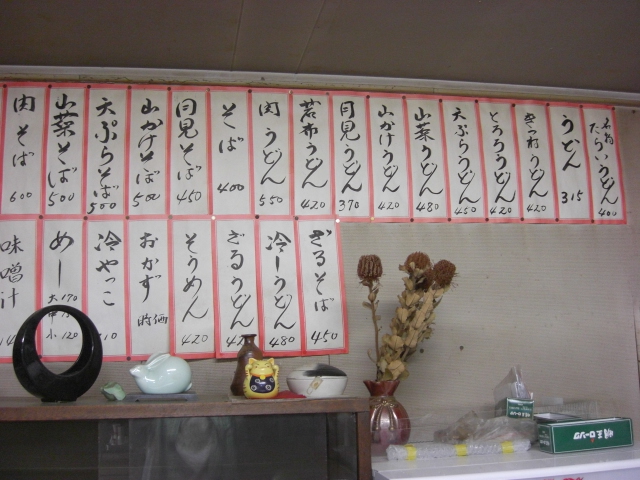 名物
たらいうどん 400
うどん 315
きつねうどん 420
とろろうどん 420
天ぷらうどん 450
山菜うどん 480
山かけうどん 420
月見うどん 370
若布うどん 420
肉うどん 550
そば 400
月見そば 450
山かけそば 500
天ぷらそば 500
山菜そば 500
肉そば 600
ざるそば 450
冷しうどん 480
ざるうどん
そうめん 420
おかず 時価
冷やっこ
めし
大170
小120
味噌汁